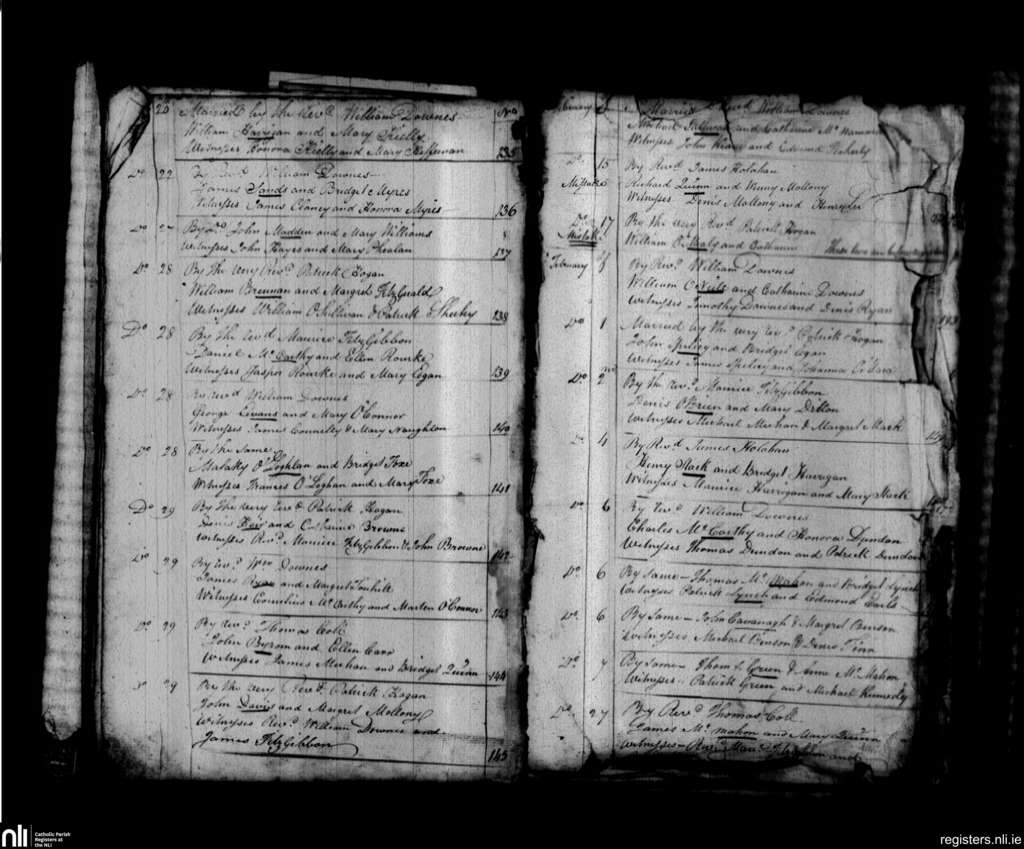 20 Married by the Revd. William Downes No
William Harigan and Mary Kielly
Witnesses Honora Kielly and Mary Heffernan 135
Do 22 By Revd. William Downes
James Sands and Bridget Myres
Witnesses James Clancy and Honora Myres 136
Do 27 By do. John Madden and Mary Williams
Witnesses John Hayes and Mary Phelan 137
Do 28 By the very Revd. Patrick Hogan
William Brennan and Margret FitzGerald
Witnesses William O'Sullivan & Patrick Sheehy 138
Do 28 By the Revd. Maurice FitzGibbon
Daniel McCarthy and Ellen Rourke
Witnesses Jasper Rourke and Mary Egan 139
Do 28 By Revd William Downes
George Levans and Mary O'Connor
Witnesses James Connelly & Mary Naughton 140
Do 28 By the Same
Malaky O'Loghlan and Bridget Foxe
Witnesses Frances O'Loghan and Mary Foxe 141
Do 29 By the very Revd Patrick Hogan
Denis Kerr and Catharine Browne
Witnesses Revd. Maurice FitzGibbon & John Browne 142
Do 29 By Revd. Wm Downes
James Ryan and Margret
Witnesses Cornelius McCarthy and Marten O'Connor 143
Do 29 By Revd. Thomas Coll
John Byrom and Ellen Care
Witnesses James Meehan and Bridget Quinn 144
Do 29 By the very Revd. Patrick Hogan
John Davis and Margret Mollony
Witnesses Revd. William Downes and
James FitzGibbon 145
Married William Downes
Michael Sullivan and Catharine
Witnesses John and Edward
Do 15 By Revd. James Holahan
Mistake Richard Quinn and Winny Mollony
Witnesses Denis Mollony and Henry
Do 17 By the very Revd Patrick Hogan
Mistake William O'Healy and Catharine
February 1 By Revd. William Downes
William O'Neill and Catharine Downes
Witnesses Timothy Downes and Denis Ryan
Do 1 Married by the very Revd. Patrick Hogan
John Spelcy and Bridget Egan
Witnesses James Spelcy and Johanna O'Hara
Do 2nd By the Revd. Maurice FitzGibbon
Denis O'Brien and Mary Dillon
Witnesses Michael Meehan & Margret Mack
Do 4 By Revd James Holahan
Henry Stack and Bridget Harrigan
Witnesses Maurice Harrigan and Mary Stack
Do 6 By Revd William Downes
Charles McCarthy and Honora Dundon
Witnesses Thomas Dundon and Patrick Dundon
Do 6 By Same – Thomas McMahon and Bridget Lynch
Witnesses Patrick Lynch and Edmond
Do 6 By Same – John Cavanagh & Margret Benson
Witnesses Michael Benson & Denis Finn
Do 7 By Same – Thomas Green & Anne McMahon
Witnesses Patrick Green and Michael Kennedy
Do 27 By Revd Thomas Coll
James McMahon and Mary
Witnesses – Revd Mau FitzGibbon and
nli Catholic Parish
Registers at
the NLI
registers.nli.ie